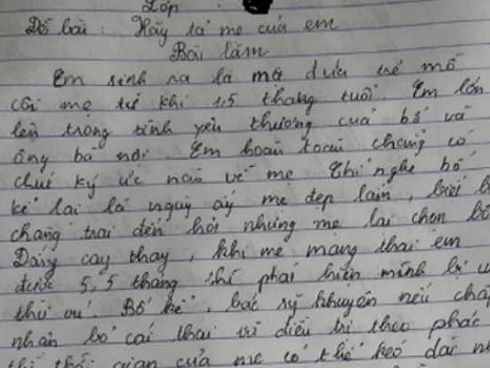 Lớp
Đề bài: Hãy tả mẹ của em
Bài làm
Em sinh ra là một đứa trẻ mồ
côi mẹ từ khi 1,5 tháng tuổi. Em lớn
lên trong tình yêu thương của bố và
ông bà nội. Em hoàn toàn chẳng có
chút ký ức nào về mẹ. Chỉ nghe bố
kể lại là ngày ấy mẹ đẹp lắm,
chàng trai đến hỏi nhưng mẹ lại chọn bố
Đắng cay thay, khi mẹ mang thai em
được 5,5 tháng thì phát hiện mình bị u
thư vú. Bố kể, bác sỹ khuyên nếu chấp
nhận bỏ cái thai và điều trị theo phác
thì thời gian của mẹ có thể kéo dài